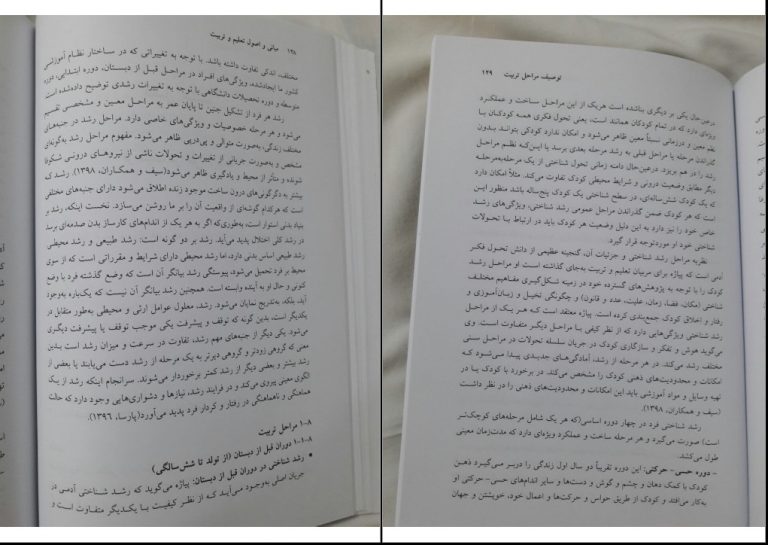 ۱۲۸ مبانی و اصول تعلیم و تربیت
مختلف، اندکی تفاوت داشته باشد. با توجه به تغییراتی که در ساختار نظام آموزشی
کشور ما ایجادشده، ویژگی‌های افراد در مراحل قبل از دبستان، دوره ابتدایی، دوره
متوسطه و دوره تحصیلات دانشگاهی با توجه به تغییرات رشدی توضیح داده‌شده است
رشد هر فرد از تشکیل جنین تا پایان عمر به مراحل معین و مشخصی تقسیم
می‌شود و هر مرحله خصوصیات و ویژگی‌های خاصی دارد. مراحل رشد در هر
مختلف زندگی، به‌صورت متوالی و پی‌درپی ظاهر می‌شود. مفهوم مراحل رشد به‌گونه‌ای
مشخص و به‌صورت جریانی از تغییرات و تحولات ناشی از نیروهای درونی شکوفا
شونده و متأثر از محیط و یادگیری ظاهر می‌شود(سیف و همکاران، ۱۳۹۸). رشد که
بیشتر به دگرگونی‌های درون ساخت موجود زنده اطلاق می‌شود دارای جنبه‌های مختلفی
است که هرکدام گوشه‌ای از واقعیت آن را بر ما روشن می‌سازد. نخست اینکه، رشد و
بنیاد بدنی استوار است، به‌طوری‌که اگر به هر یک از اندام‌های کارساز بدن صدمه‌ای برسد
در رشد کلی اختلال پدید می‌آید. رشد بر دو گونه است: رشد طبیعی و رشد محیطی
رشد طبیعی اساس بدنی دارد، اما رشد محیطی دارای شرایط و مقرراتی است که از سوی
محیط بر فرد تحمیل می‌شود، پیوستگی رشد بیانگر آن است که وضع گذشته فرد با وضع
کنونی و حال او به آینده وابسته است. همچنین رشد بیانگر آن نیست که یک‌باره به‌وجود
آید، بلکه، به‌تدریج نمایان می‌شود. رشد، معلول عوامل ارثی و محیطی به‌طور متقابل در
یکدیگر است، بدین گونه که توقف و پیشرفت یکی موجب توقف یا پیشرفت دیگری
می‌شود. یکی دیگر از جنبه‌های مهم رشد، تفاوت در سرعت و میزان رشد است بدین
معنی که گروهی زودتر و گروهی دیرتر به یک مرحله از رشد دست می‌یابند یا بعضی از
رشد بیشتر و بعضی دیگر از رشد کمتر برخوردار می‌شوند. سرانجام اینکه رشد از یک
الگوی معینی پیروی می‌کند و در فرایند رشد، نیازها و دشواری‌هایی وجود دارد که حالت
هماهنگی و ناهماهنگی در رفتار و کردار فرد پدید می‌آورد(پارسا، ۱۳۹۶).
۸-۱ مراحل تربیت
۸-۱-۱ دوران قبل از دبستان (از تولد تا شش‌سالگی)
• رشد شناختی در دوران قبل از دبستان: پیاژه می‌گوید که رشد شناختی آدمی در
جریان اصلی به‌وجود می‌آید که از نظر کیفیت با یکدیگر متفاوت است و
توصیف مراحل تربیت ۱۲۹
درعین‌حال یکی بر دیگری بناشده است هر یک از این مراحل ساخت و عملکرد
ویژه‌ای دارد که در تمام کودکان همانند است، یعنی تحول فکری همه کودکان با
نظم معین و درزمانی نسبتاً معین ظاهر می‌شود و امکان ندارد کودکی بتواند بدون
گذراندن مرحله یا مراحل قبلی به رشد مرحله بعدی برسد یا این‌که نظم مراحل
رشد را در هم بریزد. درعین‌حال دامنه زمانی تحول شناختی از یک‌مرحله به‌مرحله
دیگر مطابق وضعیت درونی و شرایط محیطی کودک تفاوت می‌کند. مثلاً امکان دارد
که یک کودک شش‌ساله‌ای، در سطح شناختی یک کودک پنج‌ساله باشد منظور این
است که هر کودک ضمن گذراندن مراحل عمومی رشد شناختی، ویژگی‌های رشد
خاص خود را نیز دارد به این دلیل وضعیت هر کودک باید در ارتباط با تحولات
شناختی خود او موردتوجه قرار گیرد.
نظریه مراحل رشد شناختی و جزئیات آن، گنجینه عظیمی از دانش تحول فکر
آدمی است که پیاژه برای مربیان تعلیم و تربیت به‌جای گذاشته است او مراحل رشد
کودک را با توجه به پژوهش‌های گسترده خود در زمینه شکل‌گیری مفاهیم مختلف
شناختی (مکان، فضا، زمان، علیت، عدد و قانون) و چگونگی تخیل و زبان‌آموزی و
رفتار و اخلاق کودک جمع‌بندی کرده است. پیاژه معتقد است که هر یک از مراحل
رشد شناختی ویژگی‌هایی دارد که از نظر کیفی با مراحل دیگر متفاوت است. وی
می‌گوید هوش و تفکر و سازگاری کودک در جریان سلسله تحولات در مراحل سنی
مختلف رشد می‌کند. در هر مرحله از رشد، آمادگی‌های جدیدی پیدا می‌شود که
امکانات و محدودیت‌های ذهنی کودک را مشخص می‌کند. در برخورد با کودک یا در
تهیه وسایل و مواد آموزشی باید این امکانات و محدودیت‌های ذهنی را در نظر داشت
(سیف و همکاران، ۱۳۹۸).
رشد شناختی فرد در چهار دوره اساسی(که هر یک شامل مرحله‌های کوچک‌تر
است) صورت می‌گیرد و هر مرحله ساخت و عملکرد ویژه‌ای دارد که مدت‌زمان معینی
طول می‌کشد.
– دوره حسی- حرکتی: این دوره تقریباً دو سال اول زندگی را دربر می‌گیرد ذهن
کودک با کمک دهان و چشم و گوش و دست‌ها و سایر اندام‌های حسی- حرکتی او
به‌کار می‌افتد و کودک از طریق حواس و حرکت‌ها و اعمال خود، خویشتن و جهان